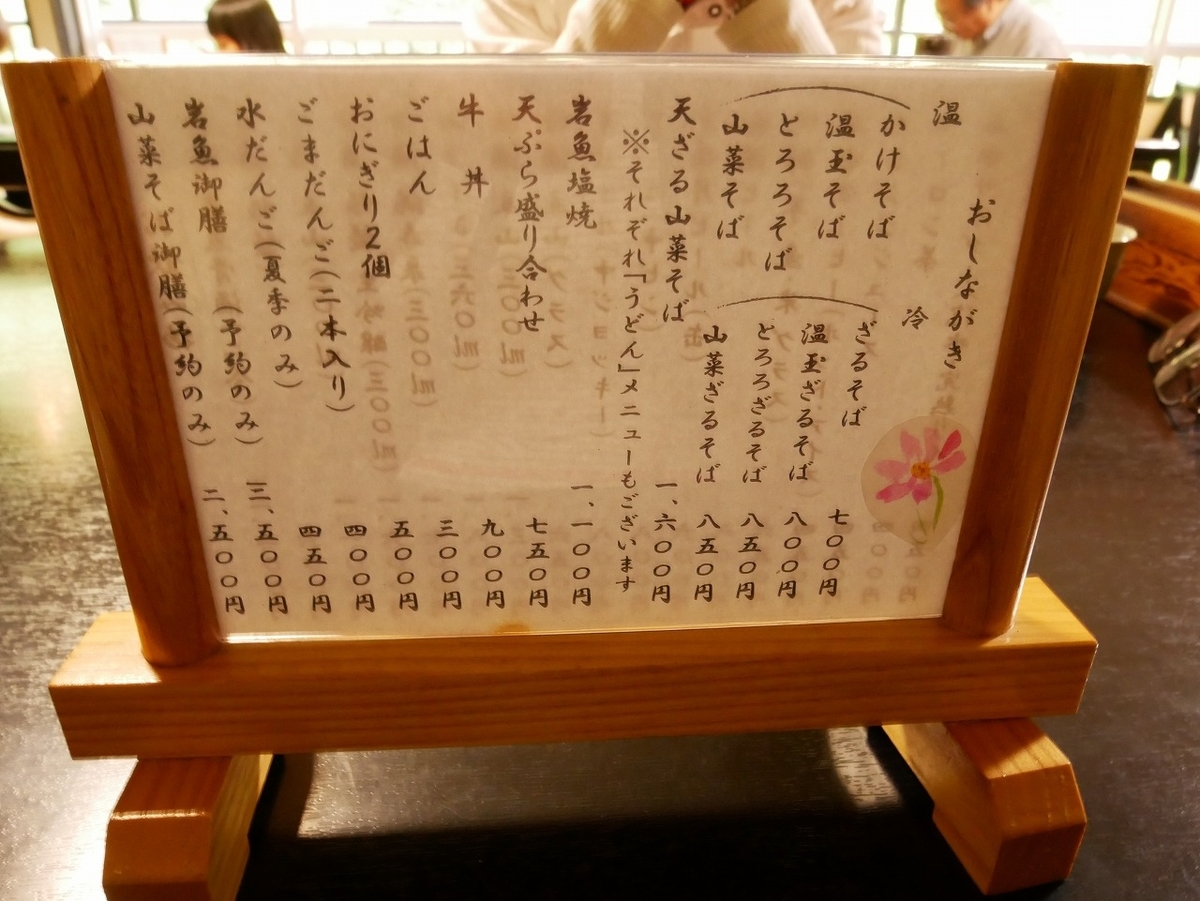 おしながき
温 冷
かけそば ざるそば 七〇〇円
温玉そば 温玉ざるそば 八〇〇円
とろろそば とろろざるそば 八五〇円
山菜そば 山菜ざるそば 八五〇円
天ざる山菜そば 一、六〇〇円
※それぞれ「うどん」メニューもございます
岩魚塩焼 一、一〇〇円
天ぷら盛り合わせ 七五〇円
牛丼 九〇〇円
ごはん 三〇〇円
おにぎり2個 五〇〇円
ごまだんご(二本入り) 四〇〇円
水だんご(夏季のみ) 四五〇円
岩魚御膳 (予約のみ) 三、五〇〇円
山菜そば御膳(予約のみ) 二、五〇〇円